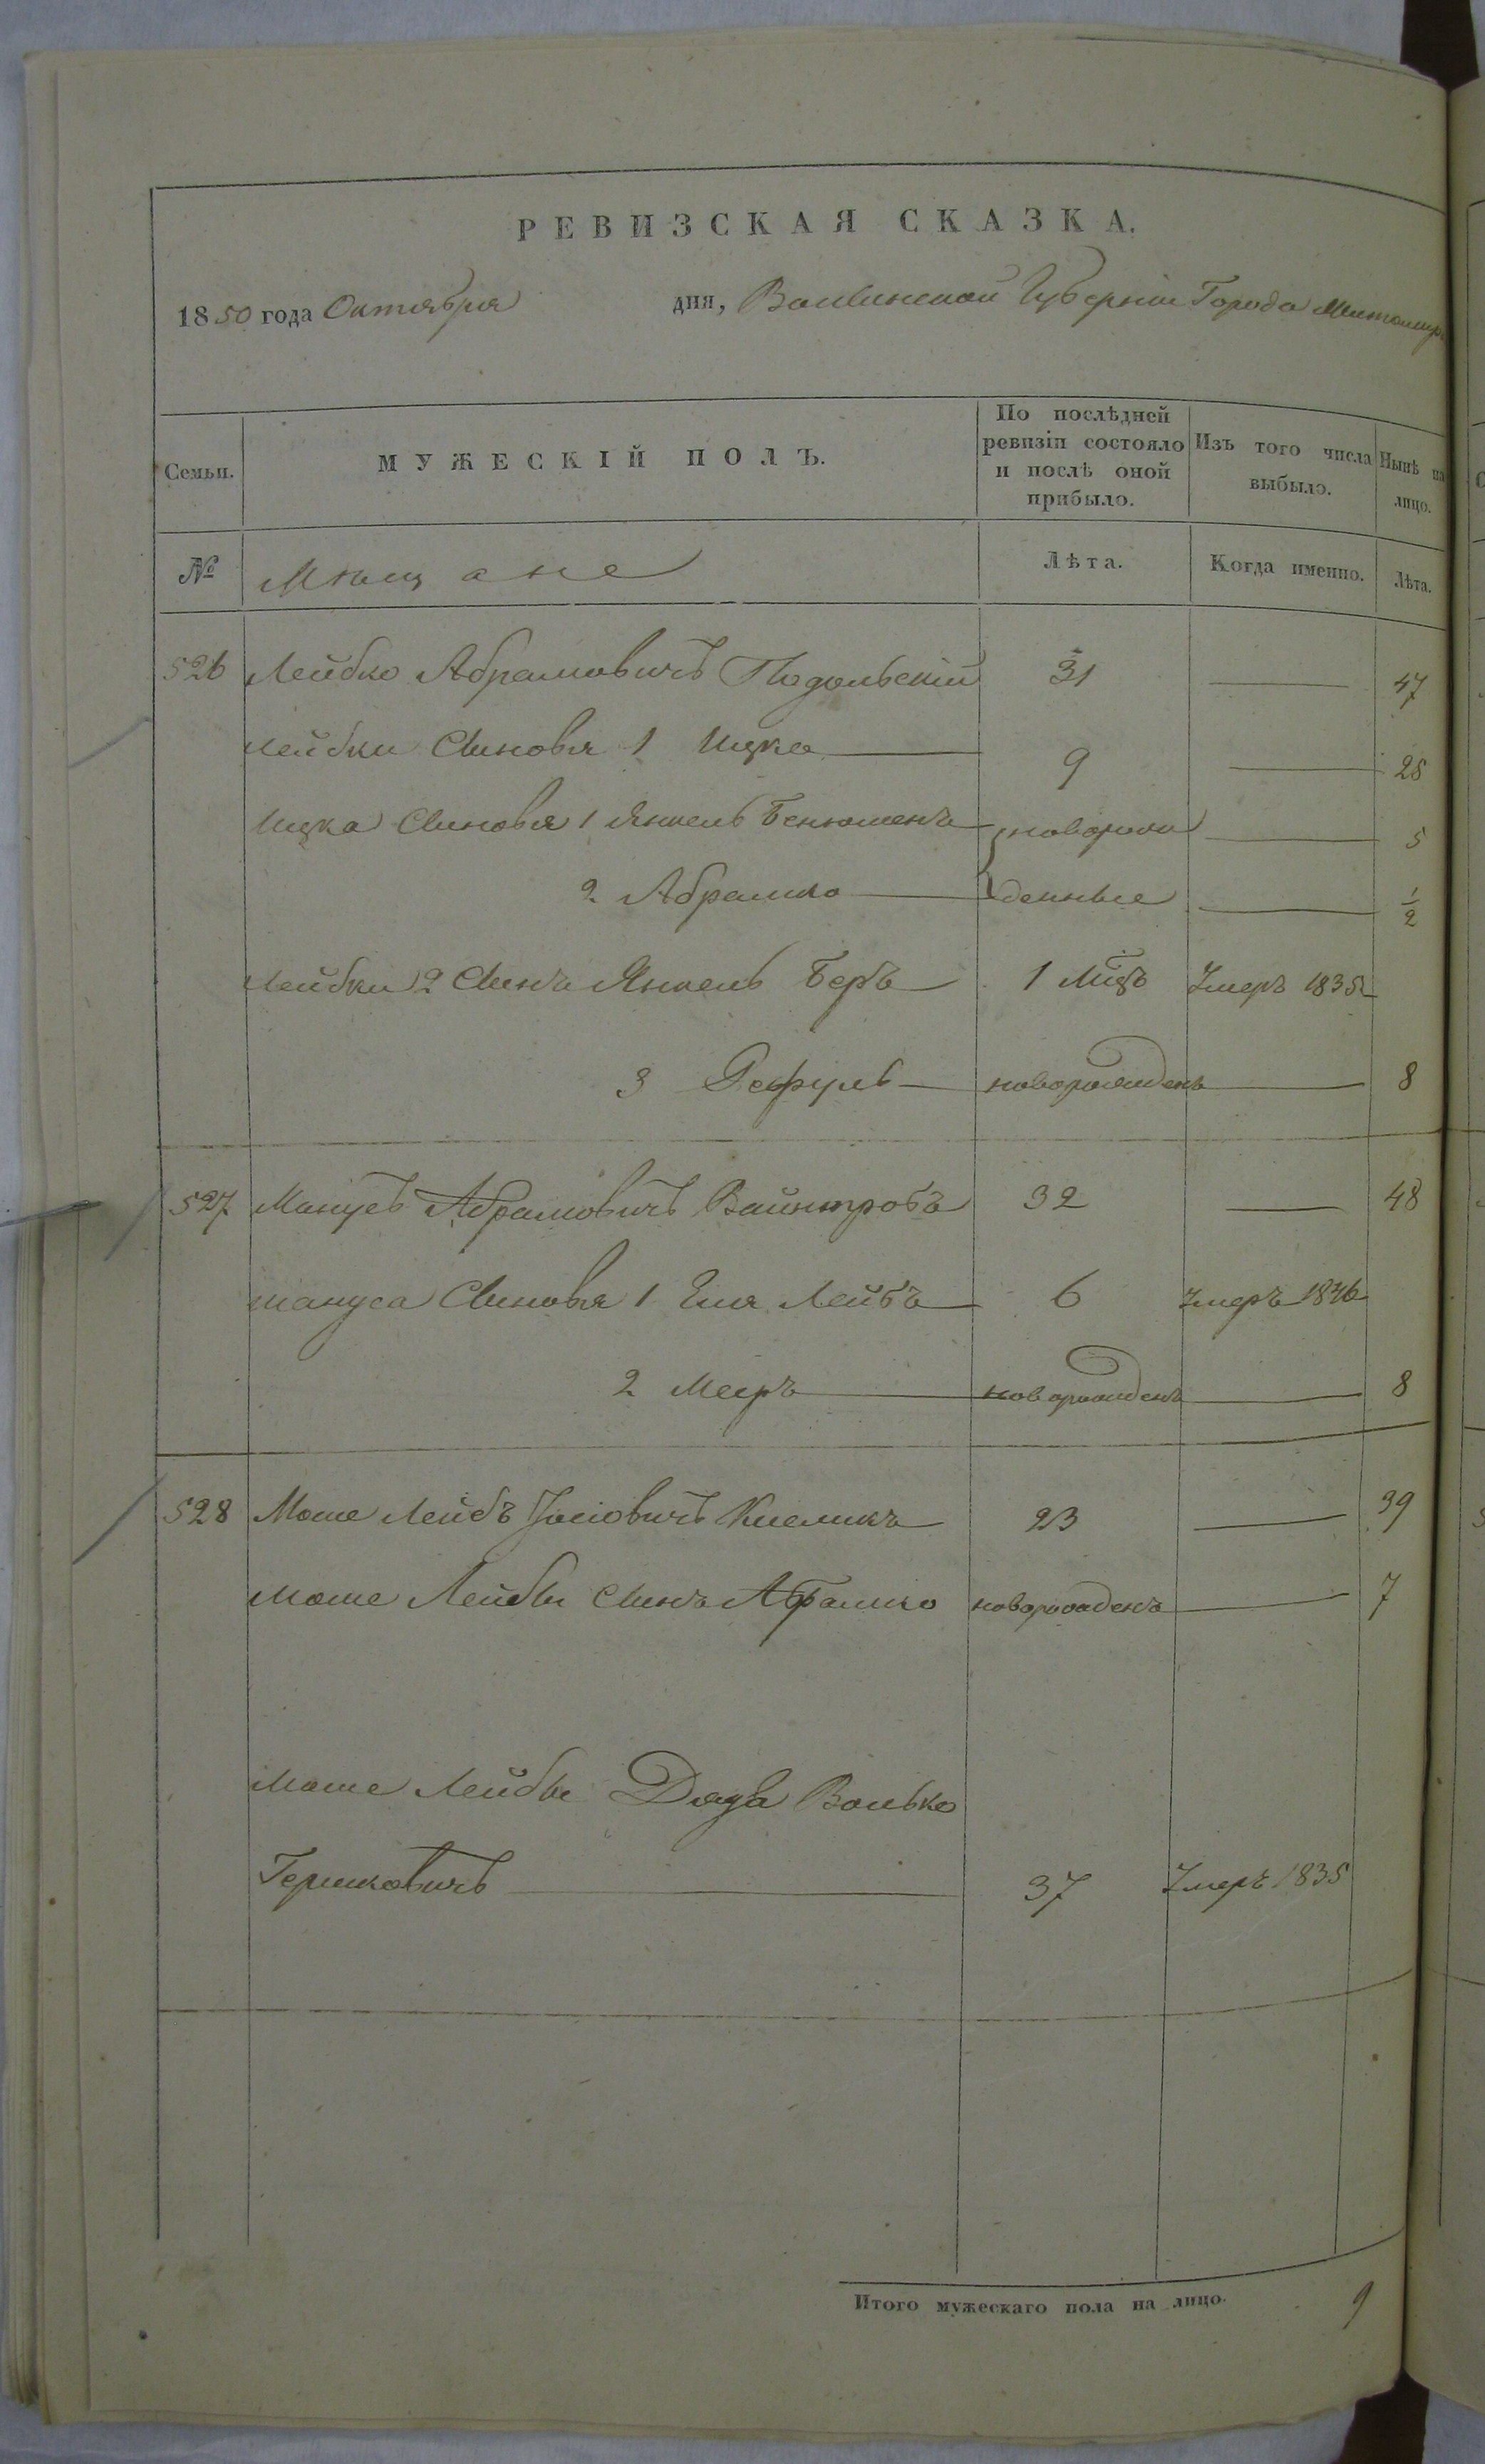 РЕВИЗСКАЯ СКАЗКА.
1850 года Октября дня, Волынской Губерніи Города Житомира
Семьи. МУЖЕСКІЙ ПОЛЪ. По послѣдней ревизіи состояло и послѣ оной прибыло. Изъ того числа выбыло. Нынѣ на лицо.
№ Мѣщане Лѣта. Когда именно. Лѣта.
526 Лейбко Абрамовичъ Подольскій 31 — 47
Лейбки Сыновья 1 Ицко — 9 — 25
Ицка Сыновья 1 Янкель Бенюменъ — новорож — 5
2 Абрамко — денные — 1/2
Лейбки 2 Сынъ Янкель Беръ — 1 мцъ Умеръ 1835
3 Рефуль — новорожденъ — 8
527 Манусъ Абрамовичъ Вайнтробъ 32 — 48
Мануса Сыновья 1 Еля Лейбъ — 6 Умеръ 1846
2 Мееръ — новорожденъ — 8
528 Моше Лейбъ Іосіовичъ 23 — 39
Моше Лейбы Сынъ Абрамко новорожденъ — 7
Моше Лейбы Дядя Волько
Гершковичъ — 37 Умеръ 1835
Итого мужескаго пола на лицо. 9